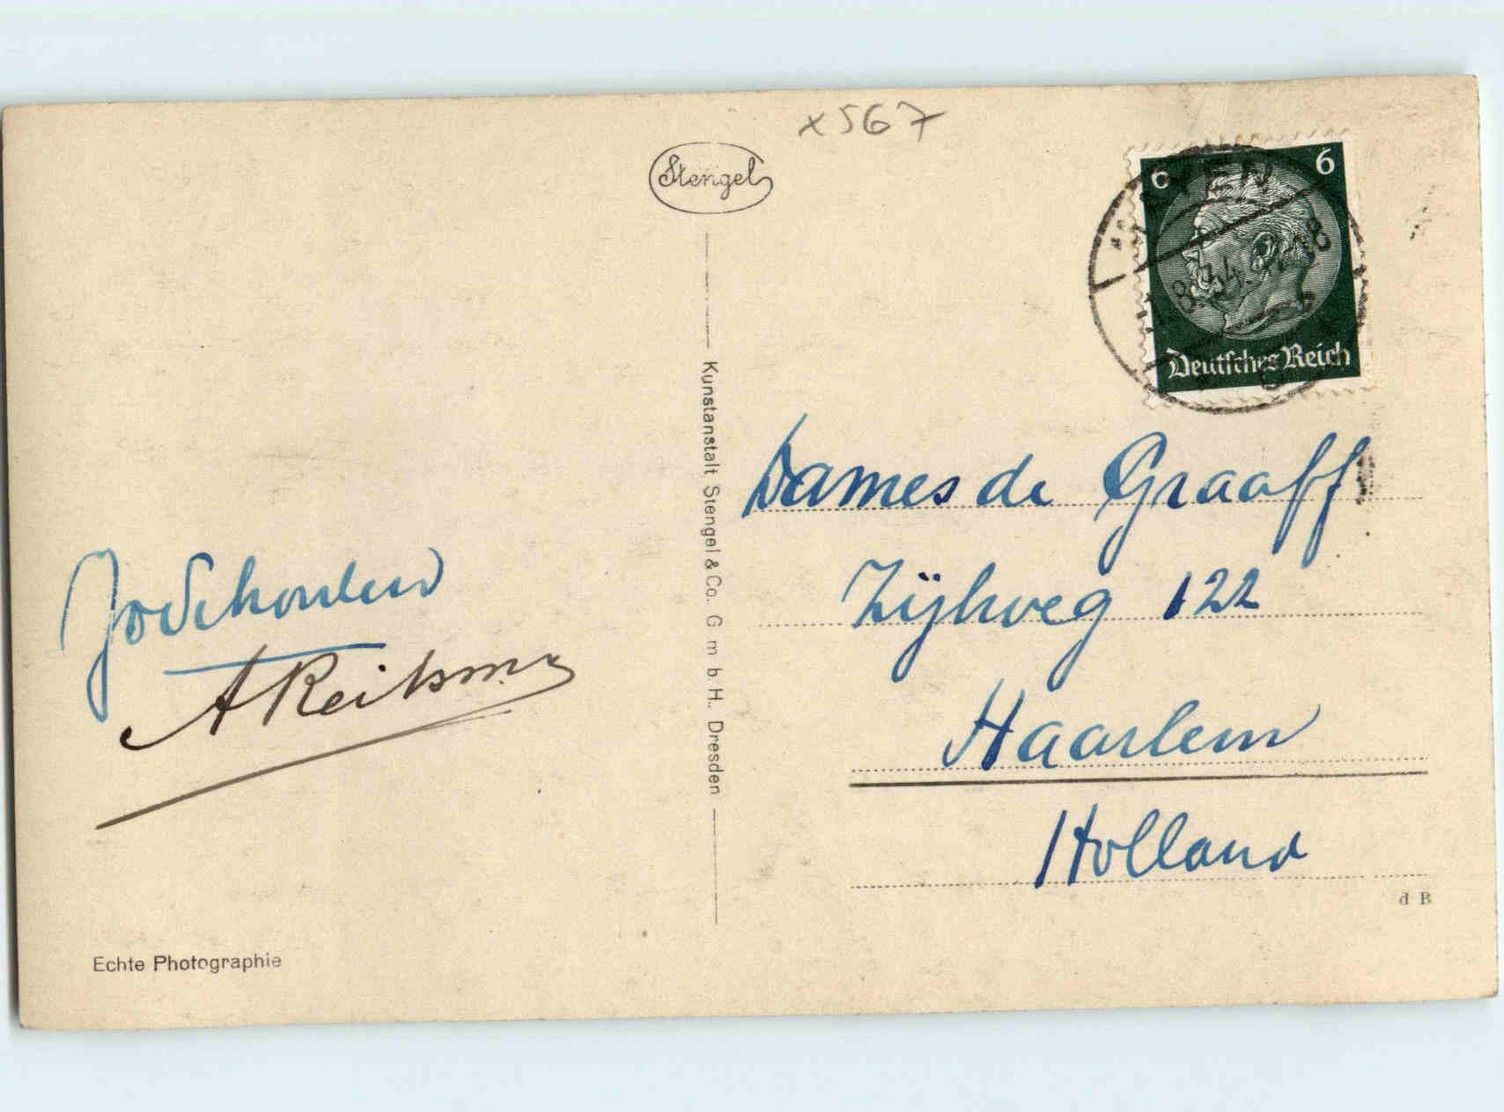 x567
Stengel
6 6
8.34. 17-18
Deutsches Reich
Kunstanstalt Stengel & Co. G m b H., Dresden
Dames de Graaff
Zijlweg 122
Haarlem
Holland
Jo Schouten
d B
Echte Photographie